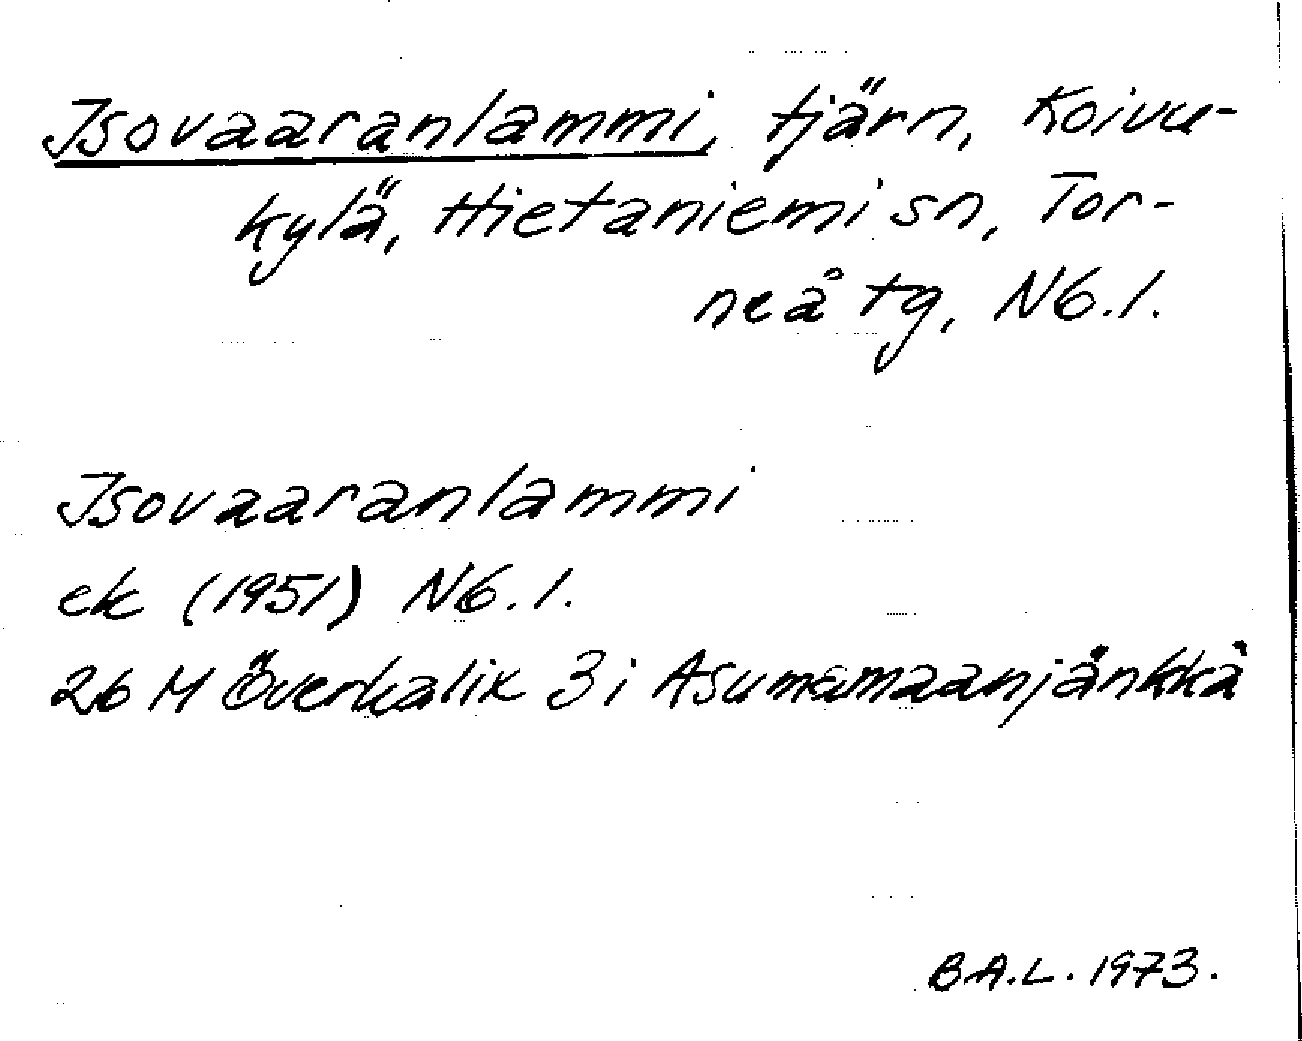 Isovaaranlammi, tjärn, Koivu-
kylä, Hietaniemi sn, Tor-
neå tg, N6.1.
Isovaaranlammi
ek (1951) N6.1.
26 M Överkalix 3 i Asumamaanjänkkä
B.A.L. 1973.